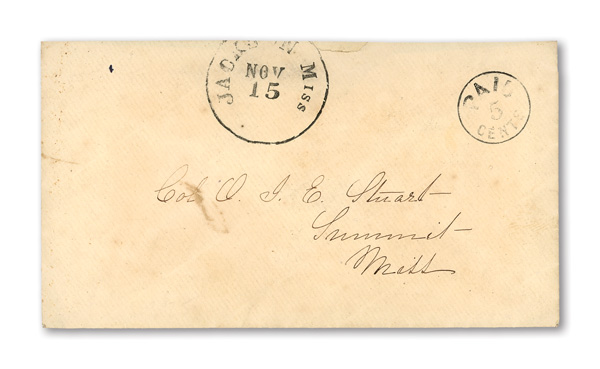 JACKSON Miss
NOV
15
PAID
5
CENTS
Col O. J. E. Stuart
Summit
Miss